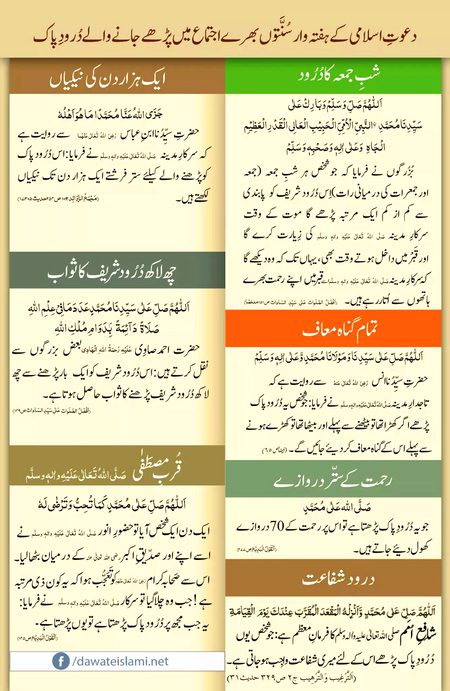 دعوتِ اسلامی کے ہفتہ وار سُنَّتوں بھرے اجتماع میں پڑھے جانے والے دُرودِ پاک
شبِ جمعہ کا دُرُود
اَللّٰہُمَّ صَلِّ وَسَلِّمْ وَبَارِكْ عَلٰی
سَیِّدِنَا مُحَمَّدِ ۨالنَّبِیِّ الْاُمِّیِّ الْحَبِیْبِ الْعَالِی الْقَدْرِ الْعَظِیْمِ
الْجَاہِ وَعَلٰی اٰلِہٖ وَصَحْبِہٖ وَسَلِّمْ
بزُرگوں نے فرمایا کہ جو شخص ہر شبِ جمعہ (جمعہ
اور جمعرات کی درمیانی رات) اِس دُرُود شریف کو پابندی
سے کم از کم ایک مرتبہ پڑھے گا موت کے وقت
سرکارِ مدینہ صَلَّی اللہُ تَعَالٰی عَلَیْہِ وَاٰلِہٖ وَسَلَّم کی زیارت کرے گا
اور قبر میں داخل ہوتے وقت بھی، یہاں تک کہ وہ دیکھے گا
کہ سرکارِ مدینہ صَلَّی اللہُ تَعَالٰی عَلَیْہِ وَاٰلِہٖ وَسَلَّم قبر میں اپنے رحمت بھرے
ہاتھوں سے اُتار رہے ہیں۔
تمام گناہ معاف
اَللّٰہُمَّ صَلِّ عَلٰی سَیِّدِنَا وَمَوْلَانَا مُحَمَّدٍ وَّعَلٰی اٰلِہٖ وَسَلِّمْ
حضرتِ سیِّدُنا انس رَضِیَ اللہُ تَعَالٰی عَنْہُ سے روایت ہے کہ
تاجدارِ مدینہ صَلَّی اللہُ تَعَالٰی عَلَیْہِ وَاٰلِہٖ وَسَلَّم نے فرمایا: جو شخص یہ دُرودِ پاک
پڑھے اگر کھڑا تھا تو بیٹھنے سے پہلے اور بیٹھا تھا تو کھڑے ہونے
سے پہلے اس کے گناہ معاف کردیئے جائیں گے۔ (ایضاً ص ۶۵)
رحمت کے ستّر دروازے
صَلَّی اللہُ عَلٰی مُحَمَّدٍ
جو یہ دُرودِ پاک پڑھتا ہے تو اس پر رحمت کے 70 دروازے
کھول دیئے جاتے ہیں۔
درودِ شفاعت
اَللّٰہُمَّ صَلِّ عَلٰی مُحَمَّدٍ وَّاَنْزِلْہُ الْمَقْعَدَ الْمُقَرَّبَ عِنْدَكَ یَوْمَ الْقِیَامَۃِ
شافِعِ اُمَم صلی اللہ تعالٰی علیہ والہ وسلم کا فرمانِ معظم ہے: جو شخص یوں
دُرودِ پاک پڑھے اس کے لئے میری شفاعت واجب ہوجاتی ہے۔
(اَلتَّرْغِیب وَالتَّرْہِیب ج۲ ص ۳۲۹ حدیث ۳۱)
ایک ہزار دن کی نیکیاں
جَزَی اللہُ عَنَّا مُحَمَّدًا مَا ھُوَ اَھْلُہٗ
حضرتِ سیِّدُنا ابنِ عباس رَضِیَ اللہُ تَعَالٰی عَنْہُمَا سے روایت ہے
کہ سرکارِ مدینہ صَلَّی اللہُ تَعَالٰی عَلَیْہِ وَاٰلِہٖ وَسَلَّم نے فرمایا: اس دُرودِ پاک
کو پڑھنے والے کیلئے ستر فرشتے ایک ہزار دن تک نیکیاں
لکھتے ہیں۔
چھ لاکھ دُرُود شریف کا ثواب
اَللّٰہُمَّ صَلِّ عَلٰی سَیِّدِنَا مُحَمَّدٍ عَدَدَ مَا فِیْ عِلْمِ اللہِ
صَلَاۃً دَآئِمَۃً بِدَوَامِ مُلْكِ اللہِ
حضرت احمد صاوی عَلَیْہِ رَحْمَۃُ اللہِ الْھَادِی بعض بزرگوں سے
نقل کرتے ہیں: اس دُرُود شریف کو ایک بار پڑھنے سے چھ
لاکھ دُرُود شریف پڑھنے کا ثواب حاصل ہوتا ہے۔
قُربِ مصطَفٰے صَلَّی اللہُ تَعَالٰی عَلَیْہِ وَاٰلِہٖ وَسَلَّم
اَللّٰہُمَّ صَلِّ عَلٰی مُحَمَّدٍ کَمَا تُحِبُّ وَتَرْضٰی لَہٗ
ایک دن ایک شخص آیا تو حضورِ انور صَلَّی اللہُ تَعَالٰی عَلَیْہِ وَاٰلِہٖ وَسَلَّم نے
اسے اپنے اور صدّیقِ اکبر رضی اللہ تعالٰی عنہ کے درمیان بٹھالیا۔
اس سے صحابہ کرام کو تَعَجُّب ہوا کہ یہ کون ذی مرتبہ
ہے! جب وہ چلا گیا تو سرکار صَلَّی اللہُ تَعَالٰی عَلَیْہِ وَاٰلِہٖ وَسَلَّم نے فرمایا:
یہ جب مجھ پر دُرُودِ پاک پڑھتا ہے تو یوں پڑھتا ہے۔
f /dawateislami.net